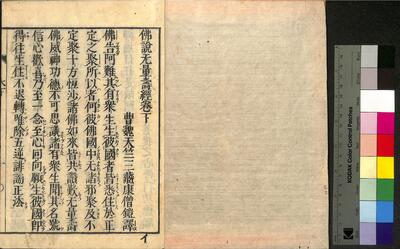 佛說无量壽經卷下
曹魏天竺三藏康僧鎧譯
佛告阿難其有衆生生彼國者皆悉住於正
定之聚所以者何彼佛國中无諸邪聚及不
定聚十方恆沙諸佛如來皆共讚歎无量壽
佛威神功德不可思議諸有衆生聞其名號
信心歡喜乃至一念至心回向願生彼國即
得往生住不退轉唯除五逆誹謗正法
イ
KODAK Color Control Patches